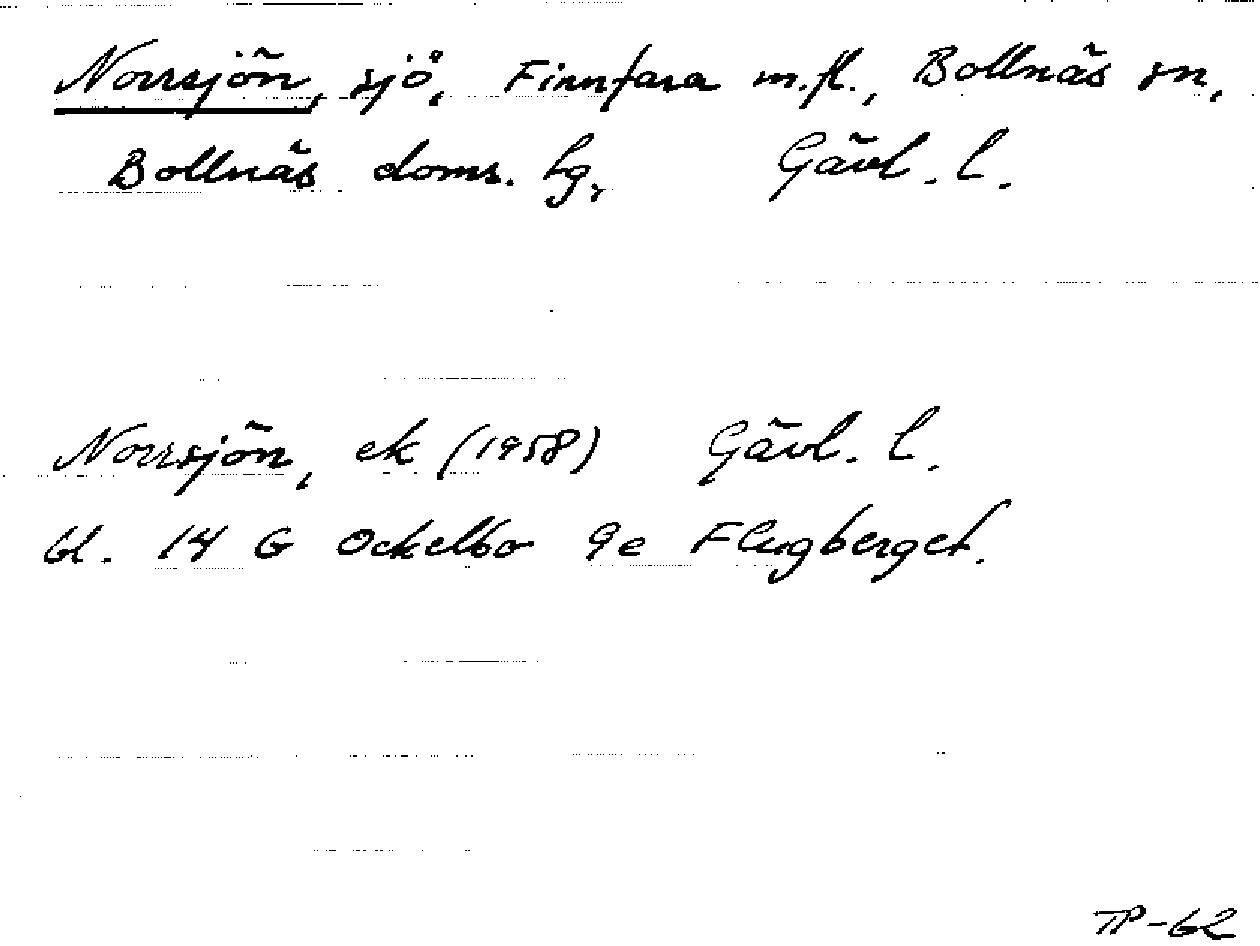 Norrsjön, sjö, Finnfara m.fl., Bollnäs sn,
Bollnäs doms. hg, Gävl. l.
Norrsjön, ek (1958) Gävl. l.
bl. 14 G Ockelbo 9e Flugberget.
TP-62